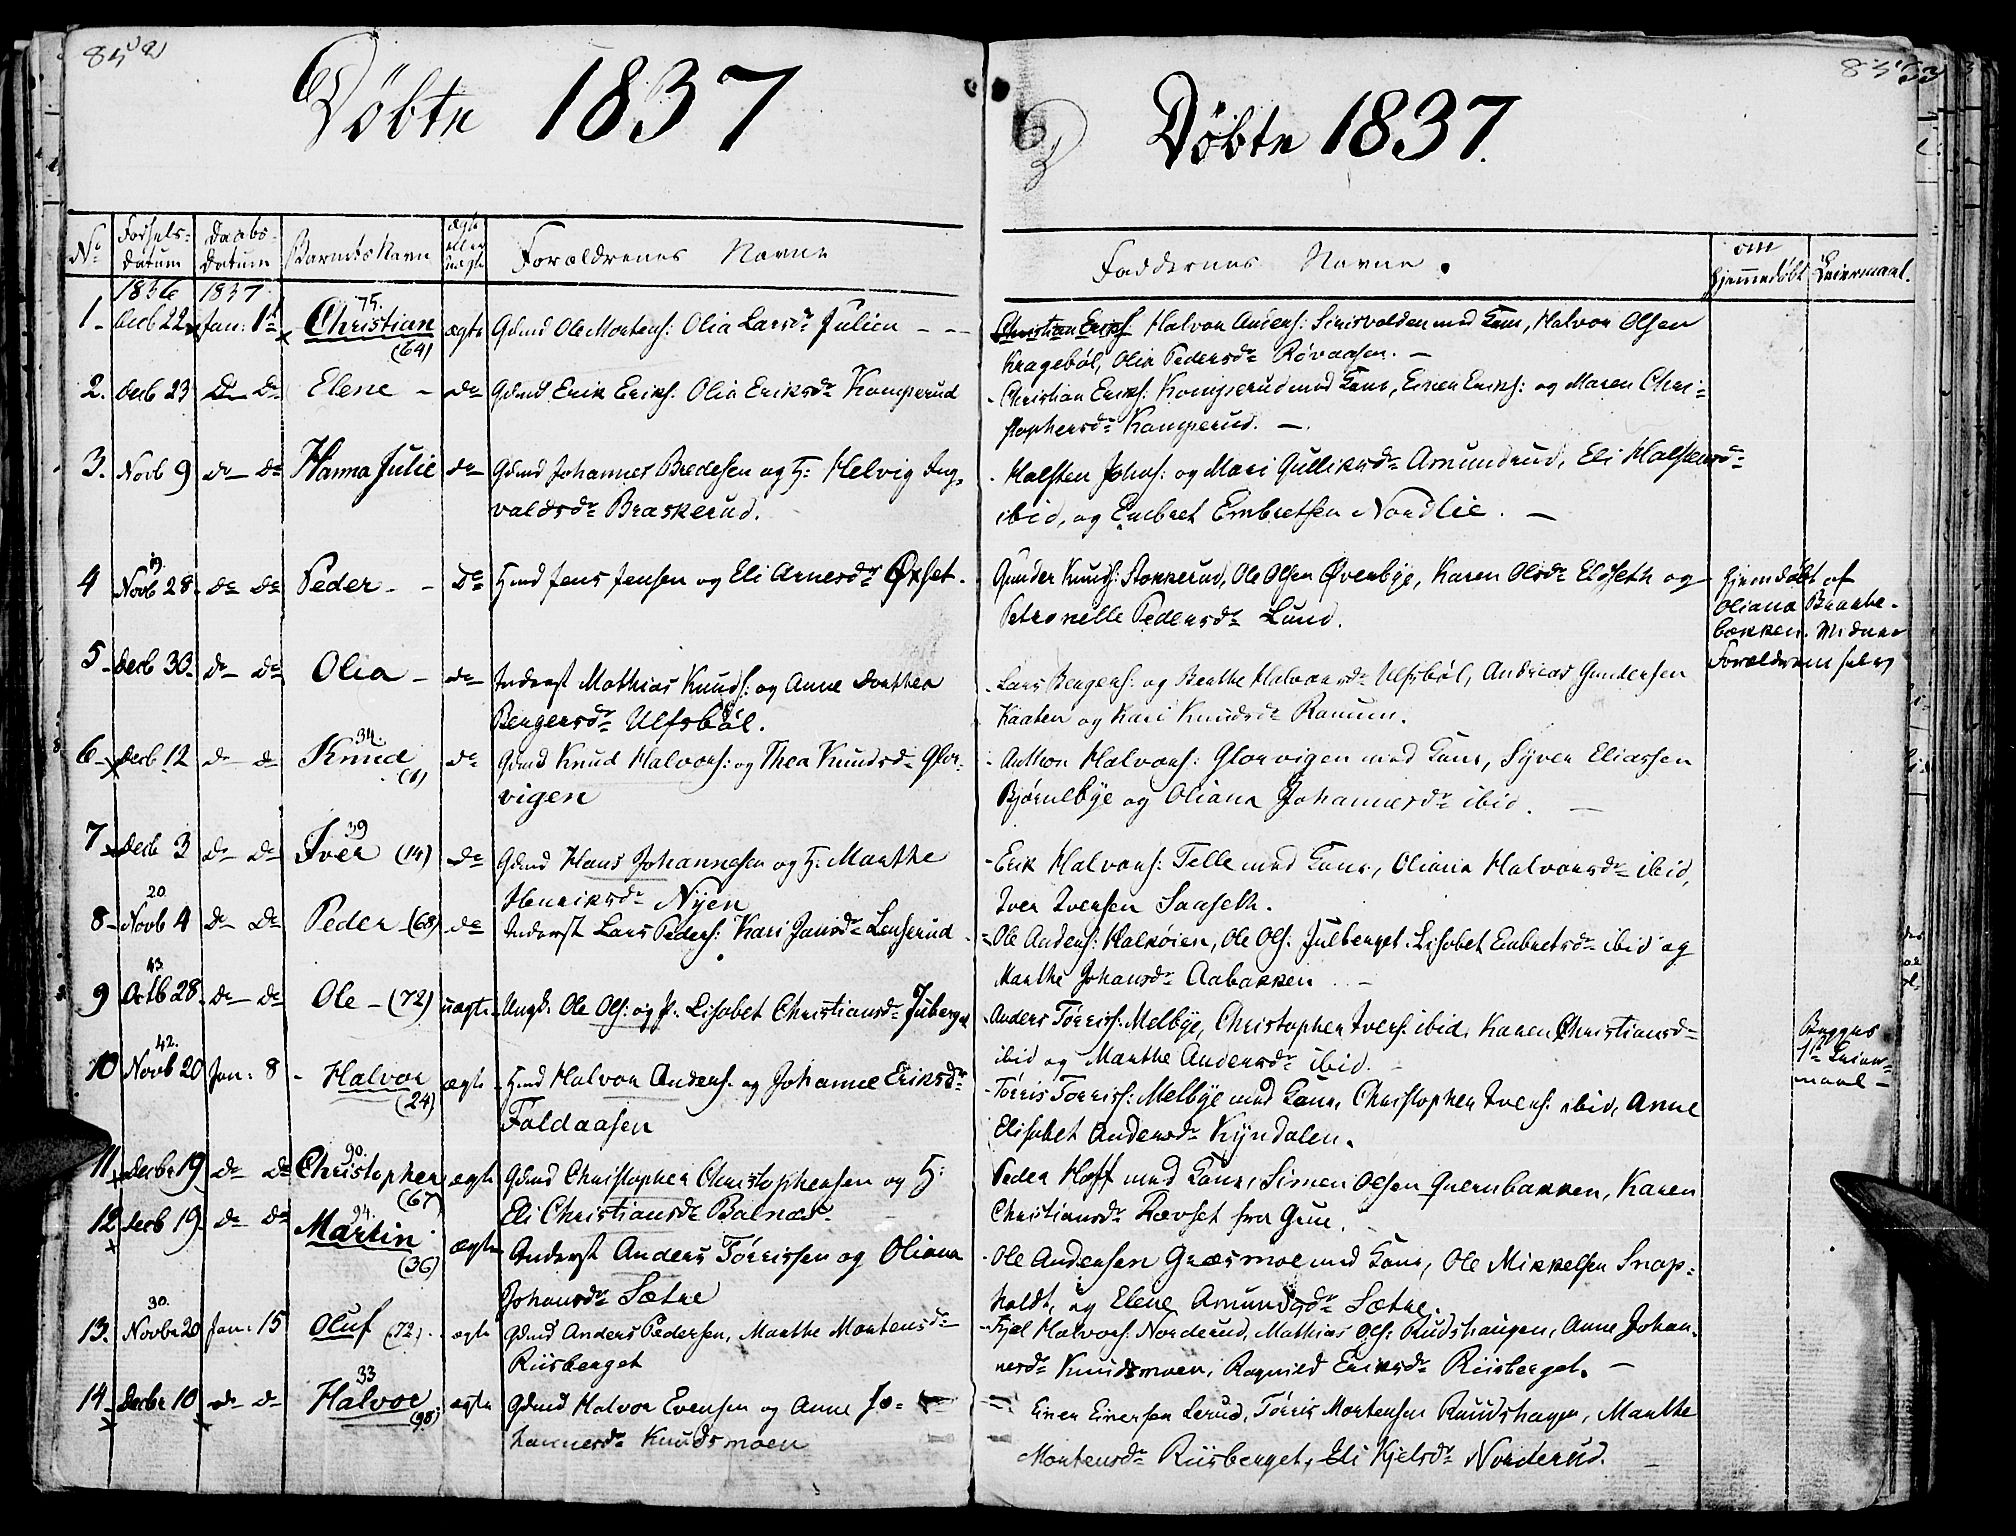 852
Döbte 1837
No
Fødsels-
datum
Daabs-
datum
Barnets Navn
ægte
eller
uægte
Forældrenes Navne
1836 1837
1 - Decb 22 Jan: 1ste 75. Christian (64) ægte Gdmd Ole Mortens: Olia Larsdr Julien - -
2. Decb 23 D- Do Elene - do Gdmd Erik Eriks: Olia Eriksdr Kamperud
3. Novb 9 do- do Hanna Julie do Gdmd Johannes Bredesen og H: Helvig Ing-
valdsdr Braskerud.
4 19. Novb 28. do do Peder - - Do Hmd Jens Jensen og Eli Arnesdr Øxset.
5 - Decb 30. do- do Olia - do Inderst Mathias Knuds: og Anne Dorthea
Bergersdr Ulfsböl.
6 - Decb 12 do- do 34. Knud (1) do Gdmd Knud Halvors: og Thea Knudsdr Glor-
vigen
7 Decb 3 do- do 39 Iver (14) do Gdmd Hans Johannesen og H: Marthe
Henriksdr Nyen
8 - 20. Novb 4 do- do Peder (68) do Inderst Lars Peders: Kari Jansdr Lenserud
9 43. Octb 28. do- do Ole - (72) uægte Ungk. Ole Ols: og P. Lisabet Christiansdr Juberget
10 42. Novb 20 Jan: 8 - Halvor (24) ægte Hmd Halvor Anders: og Johanne Eriksdr
Faldaasen
11 Decbr 19. do do 90. Christopher (67) ægte Gdmd Christopher Christophersen og H:
Eli Christiansdr Balnæs
12 Decb 19. do do 94. Martin (36) ægte Inderst Anders Törrissen og Oliana
Johansdr Sætre
13. 30. Novbr 20 Jan: 15 Oluf (72) ægte Gdmd Anders Pedersen, Marthe Mortensdr
Riisberget
14 Decbr 10 do- do 33 Halvor (98) ægte Gdmd Halvor Evensen og Anne Jo-
hannesdr Knudsmoen
Döbte 1837.
Faddernes Navne.
om
hjemmedöbt
Leiermaal.
Christian Eriks: Halvor Anders: Sirisvolden med Kone, Halvor Olsen
Kragebøl, Olia Pedersdr Røvaasen. -
- Christian Eriks: Kamperud med Kone, Einer Eriks: og Maren Chri-
stophersdr Kamperud. -
- Halsten Johns: og Mari Gulliksdr Amundrud, Eli Halstensdr
ibid, og Embret Embretsen Nordlie. -
Gunder Knuds: Stokkerud, Ole Olsen Øverbye, Karen Olsdr Eldseth og
Petronelle Pedersdr Lund.
hjemdöbt af
Oliana
bakken.
Forældrene selv
- Lars Bergers: og Berthe Halvorsdr Ulfsböl, Andreas Gundersen
Kaaten og Kari Knudsdr Ranum.
- Anthon Halvors: Glorvigen med Kone, Syver Eliassen
Bjørnebye og Oliana Johannesdr ibid. -
- Erik Halvors: Telle med Kone, Oliana Halvorsdr ibid,
Iver Iversen Saaseth.
- Ole Anders: Kalkøien, Ole Ols: Julberget. Lisabet Embretsdr ibid og
Marthe Johansdr Aabakken. -
- Anders Törris: Melbye, Christopher Ivers: ibid, Karen Christiansd-
ibid og Marthe Andersdr ibid. -
Begges
1ste Leier-
maal -
- Törris Törris: Melbye med Kone, Christopher Ivers: ibid, Anne
Elisabet Andersdr Kyndalen.
Peder Hoff med Kone, Simen Olsen Quernbakken, Karen
Christiansdr Rævset fra Grue.
- Ole Andersen Græsmoe med Kone, Ole Mikkelsen Snap-
holdt, og Elene Amundsdr Sætre.
- Kjel Halvors: Norderud, Mathias Ols: Rudshaugen, Anne Johan-
nesdr Knudsmoen, Ragnild Eriksdr Riisberget. -
Einer Einersen Lerud, Törris Mortensen Ruudshagen, Marthe
Mortensdr Riisberget, Eli Kjelsdr Norderud.